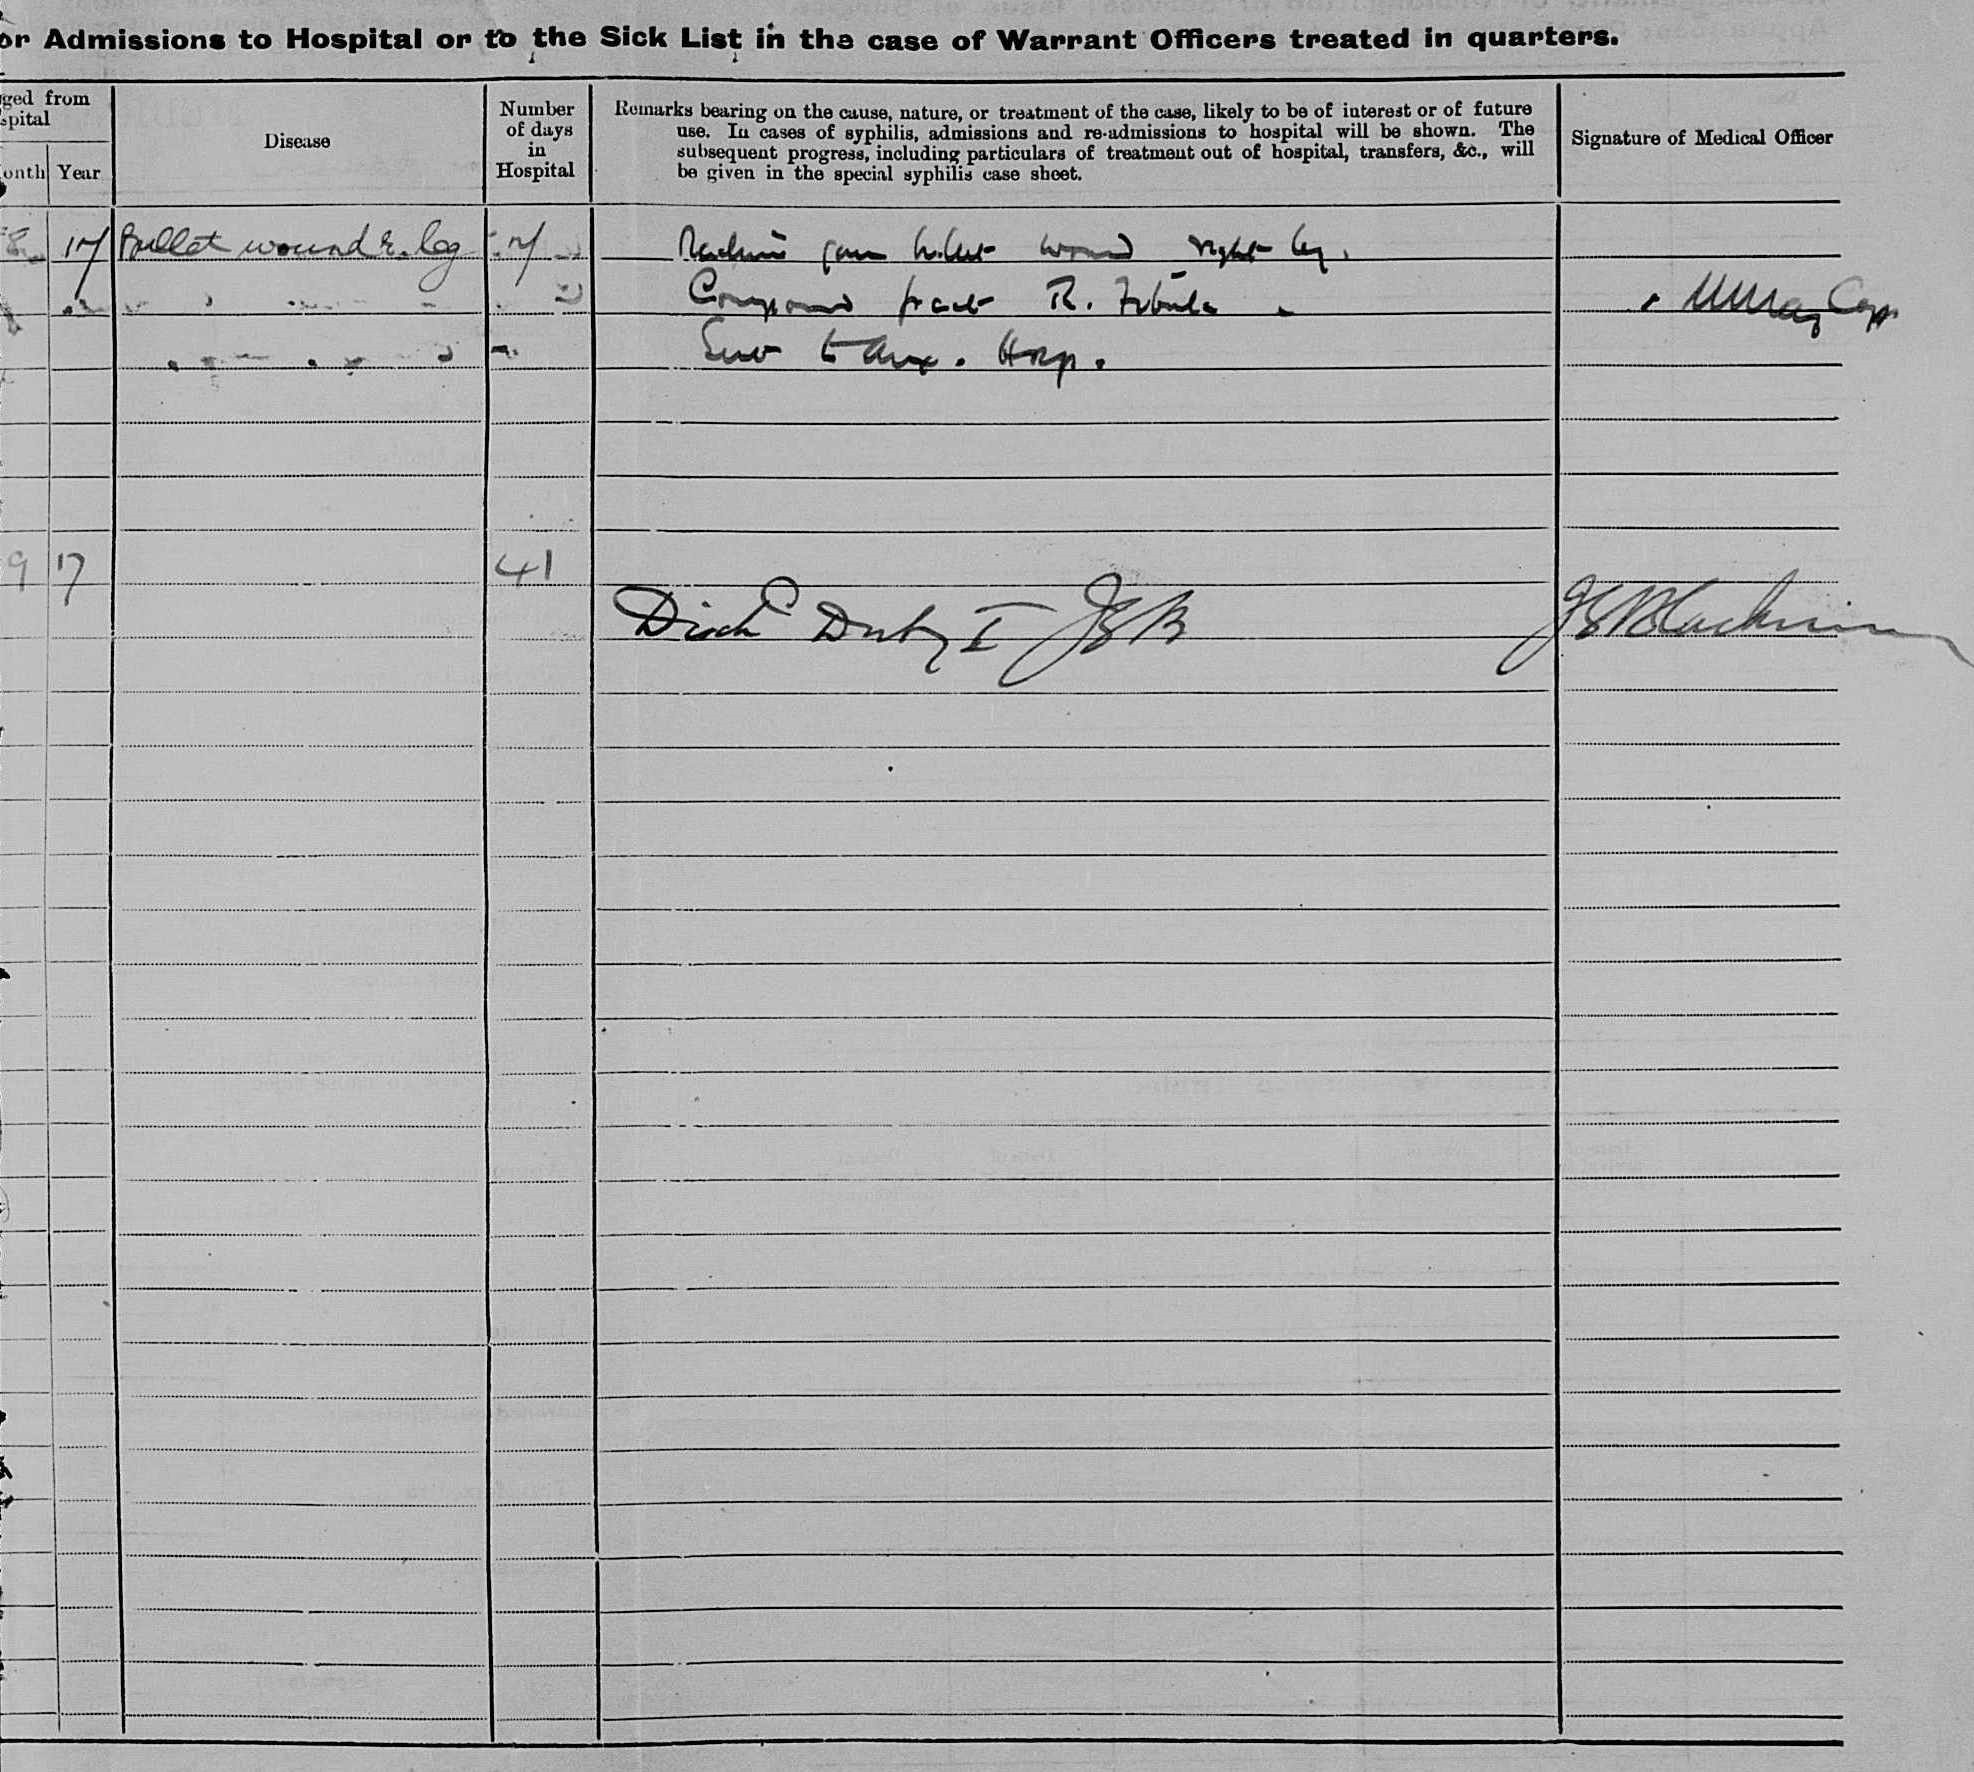 or Admissions to Hospital or to the Sick List in the case of Warrant Officers treated in quarters.
ged from
spital
onth Year
Disease
Number
of days
in
Hospital
Remarks bearing on the cause, nature, or treatment of the case, likely to be of interest or of future
use. In cases of syphilis, admissions and re-admissions to hospital will be shown. The
subsequent progress, including particulars of treatment out of hospital, transfers, &c., will
be given in the special syphilis case sheet.
Signature of Medical Officer
8 17 Bullet wound R. leg 7 Machine gun bullet wound right leg.
Compound fract R. Fibula Capt
Sent to Aux. Hosp.
9 17 41
Disch Duty I JSB